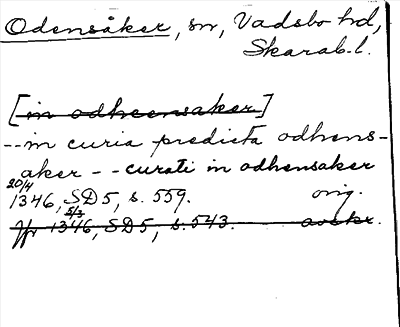 Odensåker, sn, Vadsbo hd,
Skarab. l.
[in odhensaker]
-- in curia predicta odhens-
aker -- curati in odhensaker
20/4
1346, SD 5, s. 559. orig.
5/3
Jfr 1346, SD 5, s. 543. avskr.